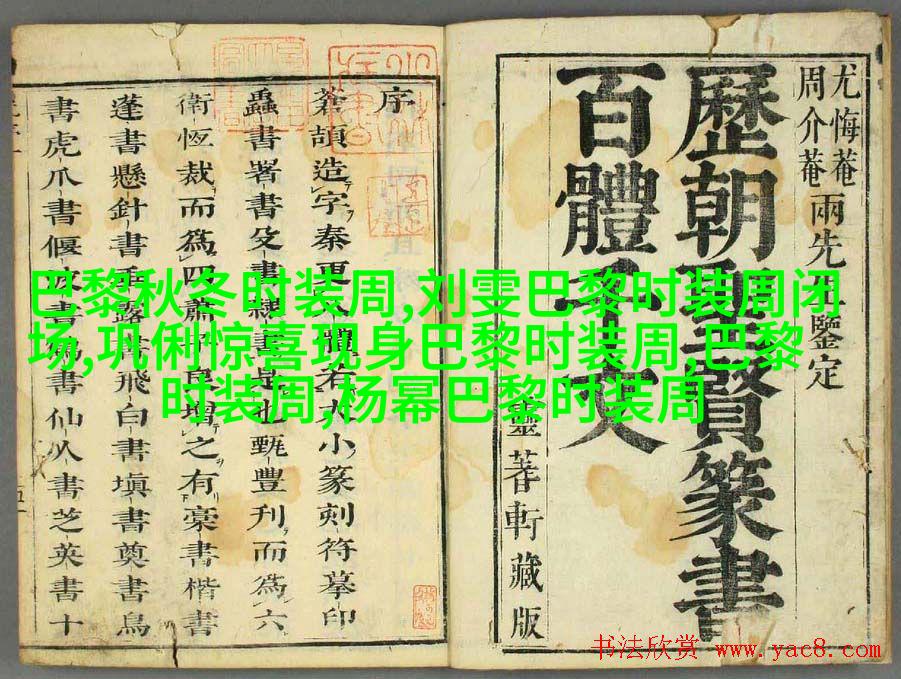 尤悔菴
周介菴
兩先生鑒定
歷朝聖賢篆書
百體千文
靈蓍軒藏版
序
蒼頡造字秦更八體若大小篆刻符摹印
蟲書署書殳書隸書是也甄豐刋而爲六
衛恆裁而爲四蕭增之有稾書楷書
蓬書懸針書垂露書飛白書塡書奠書鳥
書虎爪書偃波書書仙人書芝英書十
巴黎秋冬时装周,刘雯巴黎时装周闭
场,巩俐惊喜现身巴黎时装周,巴黎
时装周,杨幂巴黎时装周
书法欣赏 www.yac8.com